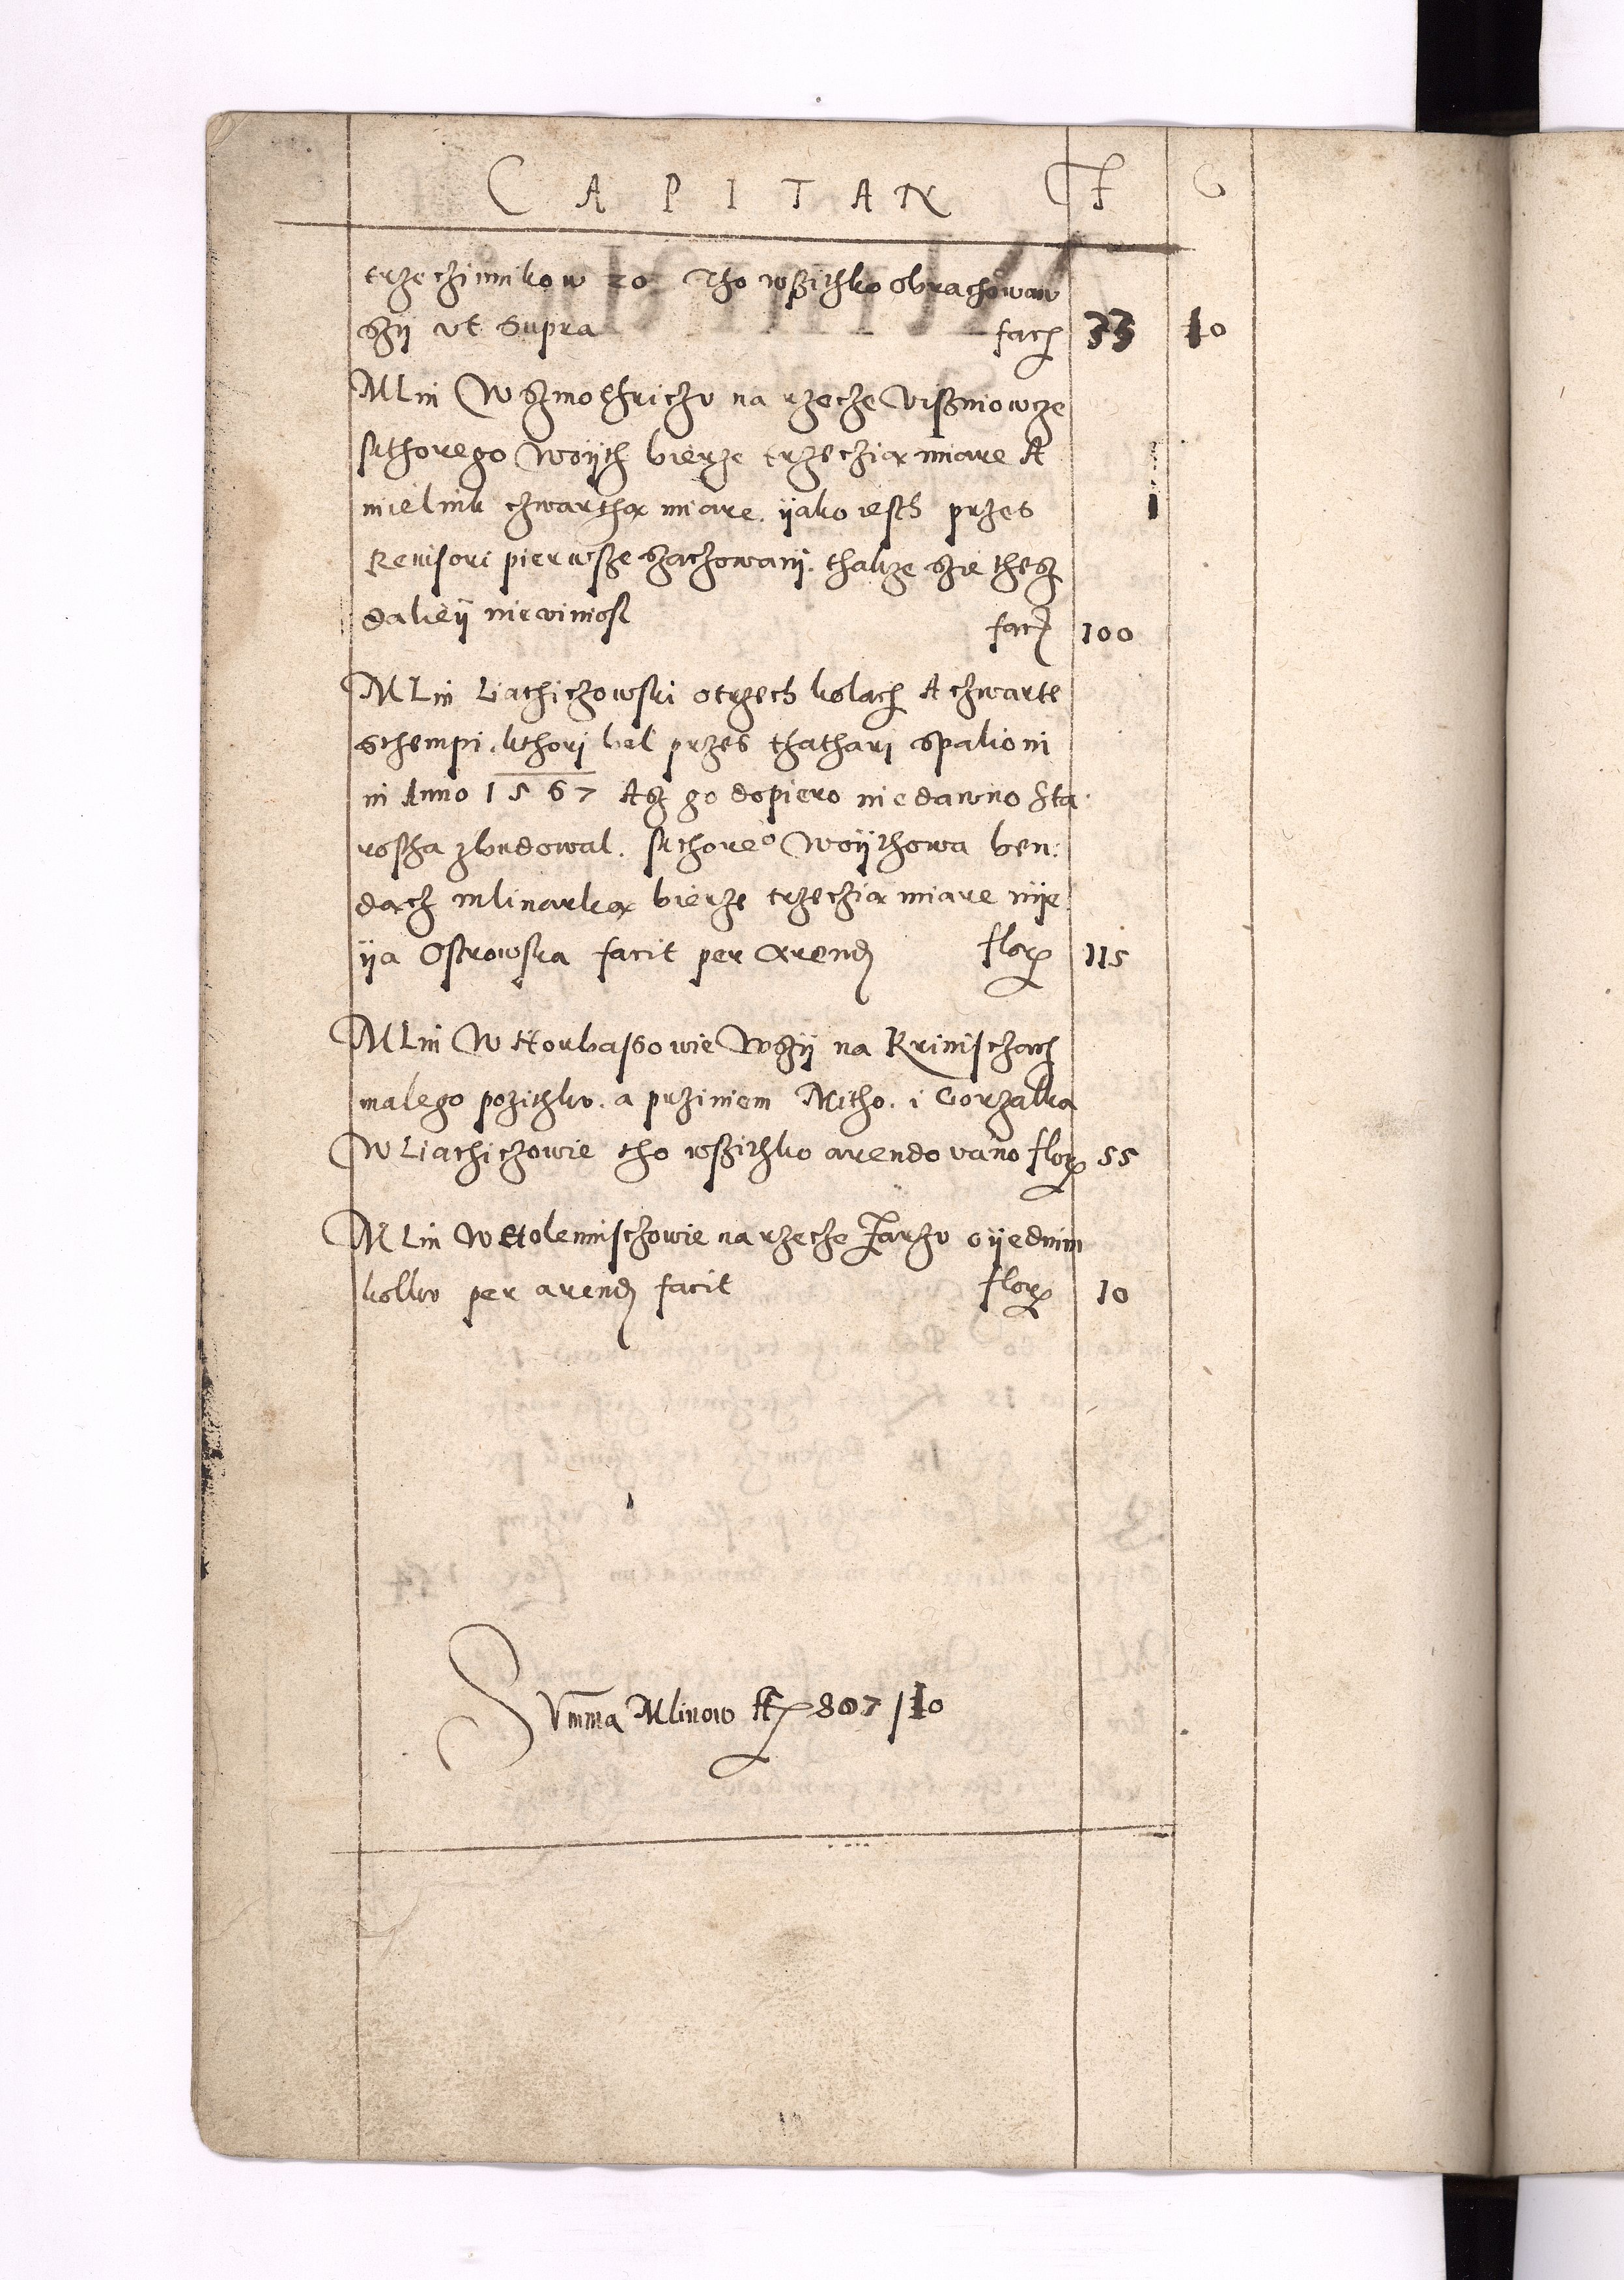 CAPITAN F G
trzeczinnikow 20 Tho wßithko obrachowaw
szÿ ut Supra facỷ 33 10
MLin W Szmothrichu na rzecze Vißniowcze
kthorego Woÿth bierze trzeczia miare A
mielnik czwartha miare. ÿako iesth przes
Revisori pierwsze szachowanÿ. thakze szie thesz
dalieÿ nie winiosl fac 100
MLin Liathiczowski o trzech kolach A czwarte
sthempi. kthori bel przes thathari spalioni
in Anno 1567 Asz go dopiero niedawno Sta
rostha zbudowal. kthoreo Woÿthowa ben:
dacz mlinarka bierze trzeczia miare niÿe
ÿa Ostrowska facit per arend flor 115
MLin W Horbassowie Wszÿ na Krinischach
malego pozithku. a przi niem Mitho. i Gorzalka
W Liathiczowie tho wßithko arendovano flor 55
MLin W Holenischowie na rzeche Jarzu o ÿednim
kollu per arend facit flor 10
Summa Mlinow fl 807 / 10